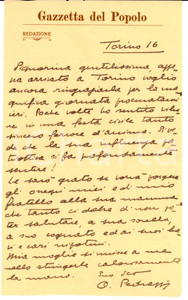 Gazzetta del Popolo
REDAZIONE
Torino 16
Signorina gentilissima, appe
na arrivato a Torino voglio
ancora ringraziarla per la ma
gnifica giornata procuratami
ieri. Poche volte ho sentito vibra
re in una festa civile tanto
sincero fervore d'animo. Si ve
de che la sua influenza pa
triottica si fa profondamente
sentire!
Le sarò grato se vorrà porgere
gli ossequi miei e di mio
fratello alla sua mamma
che tanto ci dolse di non po
ter salutare, a sua sorella,
a suo cognato ed ai suoi bra
vi e cari nipotini.
Mia moglie si unisce a me
nello stringerle calorosamente
la mano.
Suo dev
O. Pedrazzi